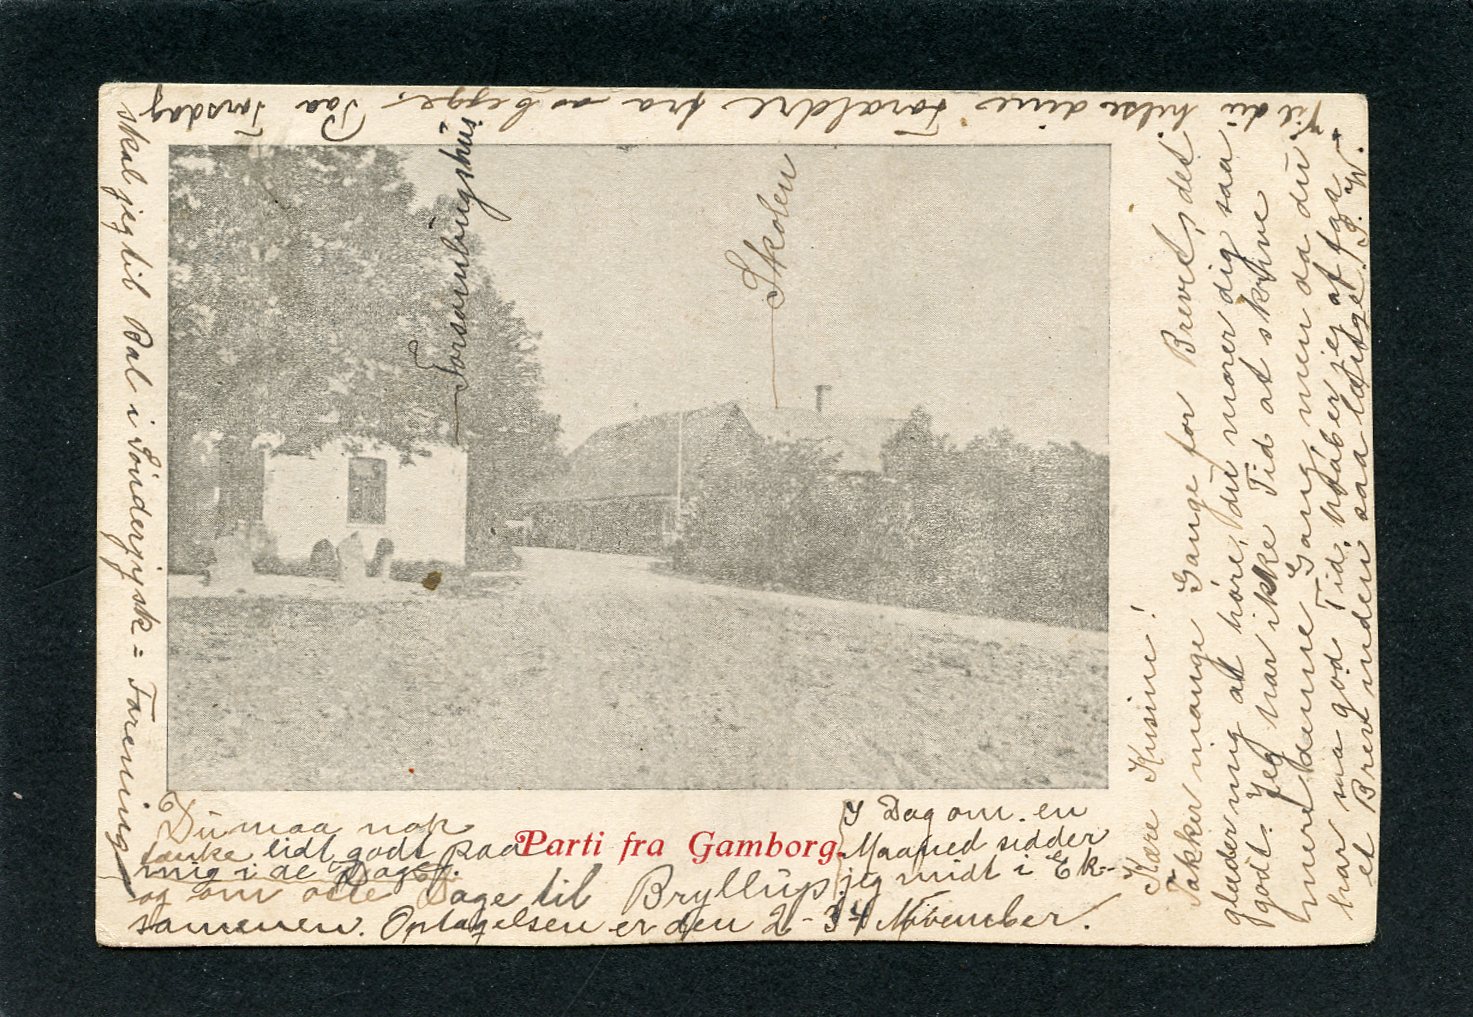 Kære Kusine!
Takker mange Gange for Brevet, det
glæder mig at høre, du morer dig saa
godt. Jeg har ikke Tid at skrive
mere denne Gang men da du
har saa god Tid, haaber jeg at faa
et Brev inden saa længe. J. W.
Vil du hilse dine Forældre fra os begge. Paa Torsdag
skal jeg til Bal i Sønderjysk=Forening
Forsamlingshus
Skolen
Parti fra Gamborg.
Du maa nok
tænke lidt godt paa
mig i de Dage.
og om otte Dage til Bryllup.
I Dag om en
Maaned sidder
jeg midt i Ek-
samenen. Optagelsen er den 2-3-4 November.